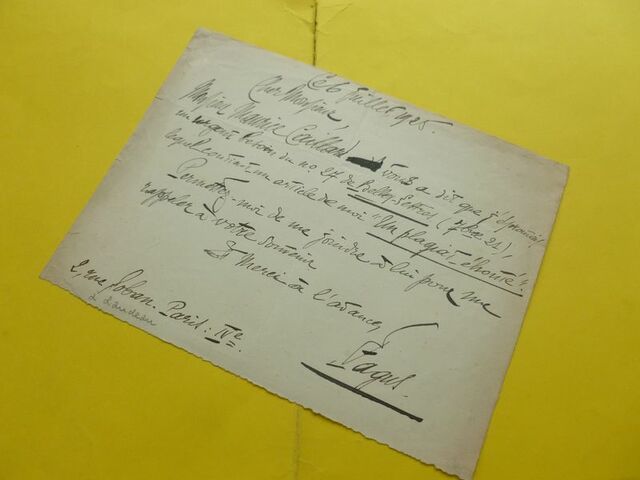 Ce 6 Juillet 1925.
Cher Monsieur
Monsieur Maurice Caillard vous a dit que j'éprouvais
un urgent besoin du no 27 de Belles-Lettres
lequel contient un article de moi "Un plagiat éhonté".
Permettez-moi de me joindre à lui pour me
rappeler à votre souvenir
Et merci à l'avance,
Fagus.
2 rue Paris: IVe.